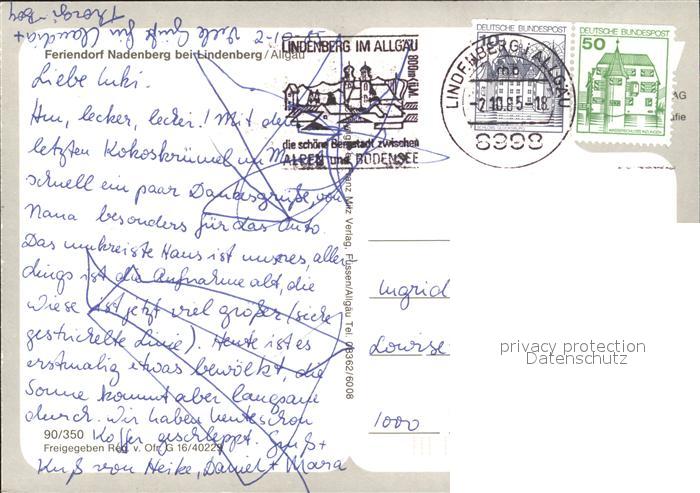 Thorgi-Boy
P.S. 2-10 Viele Grüße für Claudia +
Feriendorf Nadenberg bei Lindenberg / Allgäu
Liebe Luki.
Hm, lecker, lecker! Mit dem
letzten Kokoskrümel im M
schnell ein paar Dankesgrüße, von
Nana besonders für das Auto.
Das umkreiste Haus ist unseres, aller
dings ist die Aufnahme alt, die
Wiese ist jetzt viel größer (siehe
gestrichelte Linie). Heute ist es
erstmalig etwas bewölkt, die
Sonne kommt aber langsam
durch. Wir haben heute schon
Koffer geschleppt. Gruß +
Kuß von Heike, Daniel + Mara
90/350
Freigegeben Reg. v. Obb. G 16/40229
Franz Milz Verlag, Füssen/Allgäu Tel. 08362/6008
LINDENBERG IM ALLGÄU
800m ü.M.
die schöne Bergstadt zwischen
ALPEN und BODENSEE
LINDENBERG i ALLGÄU
mb
-2.10.85-18
8998
DEUTSCHE BUNDESPOST
DEUTSCHE BUNDESPOST
50
WASSERSCHLOSS INZLINGEN
AG
Ingrid
Louise
1000
privacy protection
Datenschutz